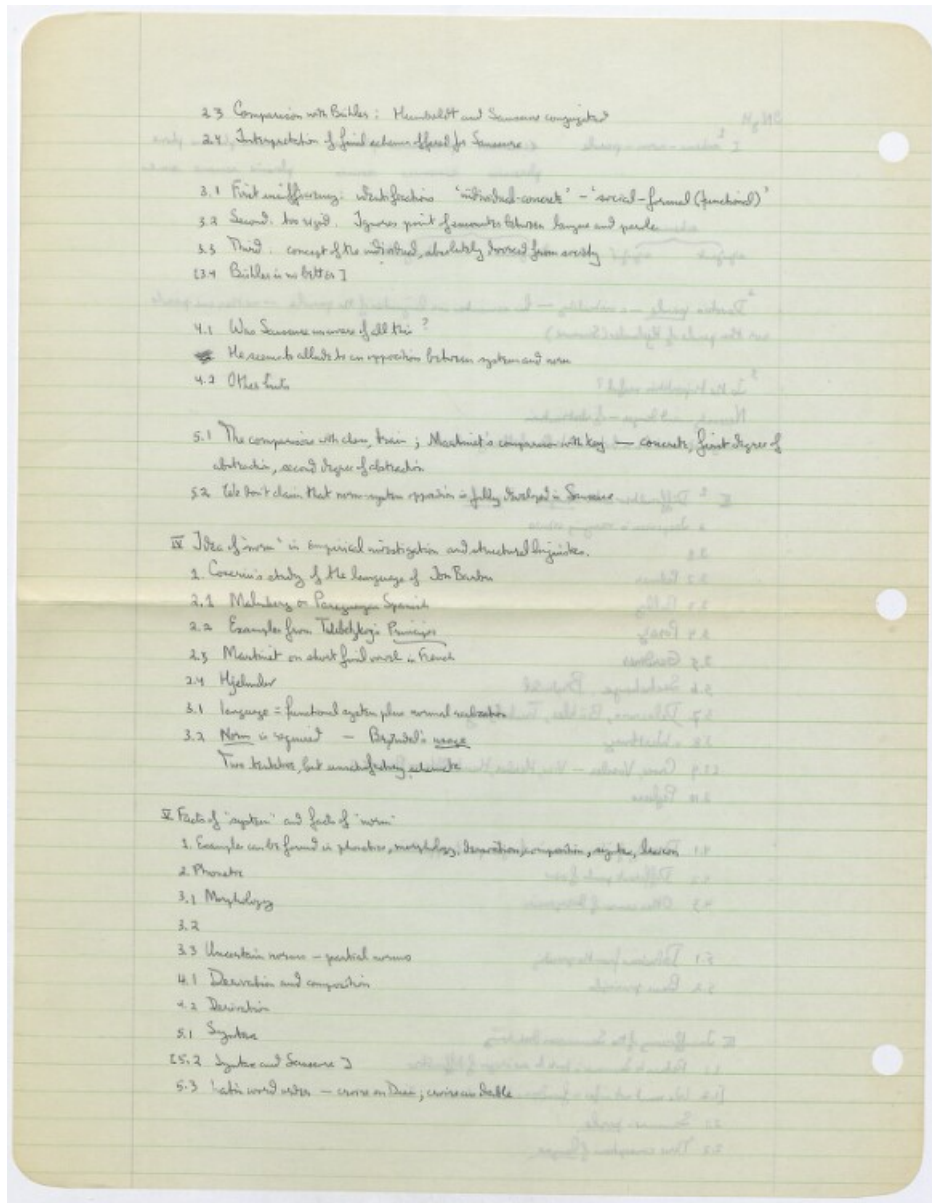 2.3 Comparison with Bühler: Humboldt and Saussure conjugated
2.4 Interpretation of final schema offered for Saussure
3.1 First insufficiency: identifications 'individual-concrete' - 'social-formal (functional)'
3.2 Second: too rigid. Ignores point of encounter between langue and parole
3.3 Third: concept of the individual, absolutely divorced from society
[3.4 Bühler is no better]
4.1 Was Saussure unaware of all this?
He seems to allude to an opposition between system and norm
4.2 Other hints
5.1 The comparison with chess, train; Martinet's comparison with key — concrete, first degree of
abstraction, second degree of abstraction
5.2 We don't claim that norm-system opposition is fully developed in Saussure
IV Idea of "norm" in empirical investigation and structural linguistics.
1. Coseriu's study of the language of Ion Barbu
2.1 Malmberg on Paraguayan Spanish
2.2 Examples from Trubetzkoy's Principes
2.3 Martinet on short final vowel in French
2.4 Hjelmslev
3.1 language = functional system plus normal realization
3.2 Norm is required — Brøndal's usage
Two tentative, but unsatisfactory schemata
V Facts of "system" and facts of "norm"
1. Examples can be found in phonetics, morphology, derivation, composition, syntax, lexicon
2. Phonetic
3.1 Morphology
3.2
3.3 Uncertain norms — partial norms
4.1 Derivation and composition
4.2 Derivation
5.1 Syntax
[5.2 Syntax and Saussure]
5.3 Latin word order — croire en Dieu;